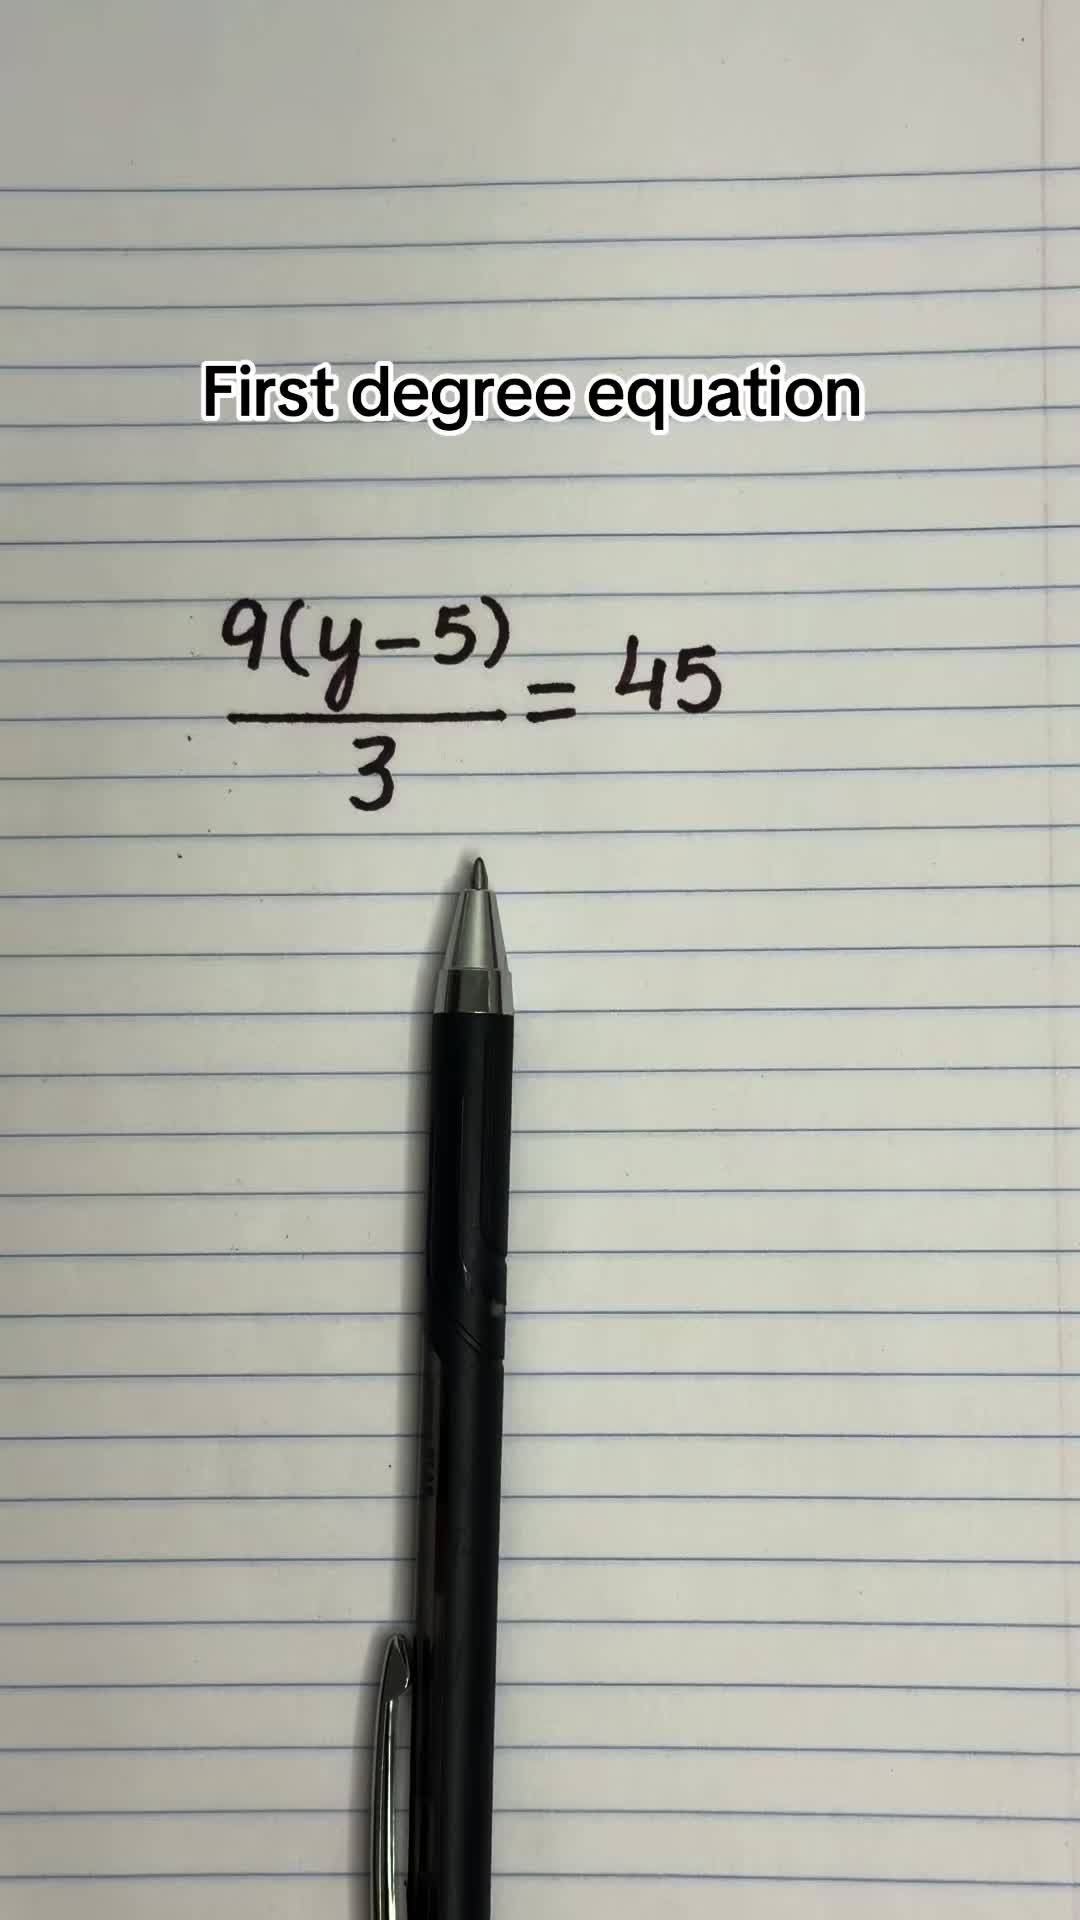 First degree equation
9(y-5)
= 45
3